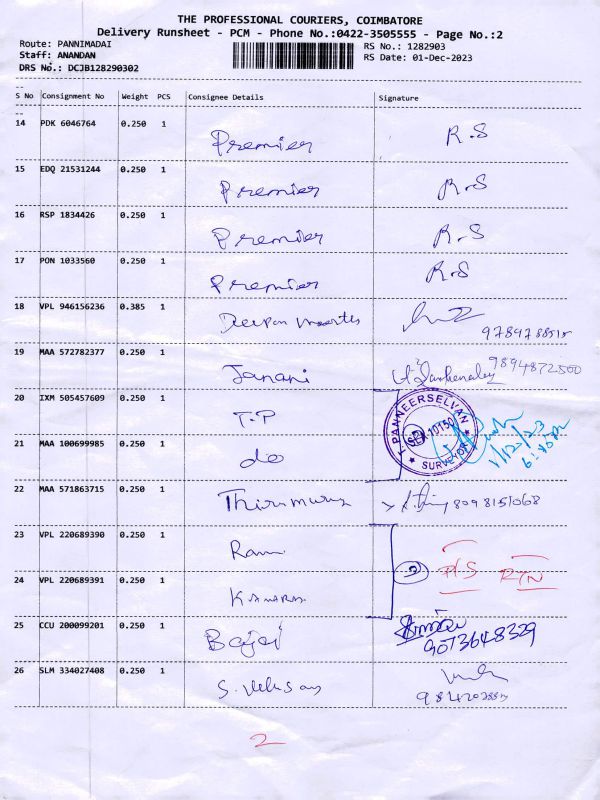 THE PROFESSIONAL COURIERS, COIMBATORE
Delivery Runsheet - PCM - Phone No.:0422-3505555 - Page No.:2
Route: PANNIMADAI
RS No.: 1282903
Staff: ANANDAN
RS Date: 01-Dec-2023
DRS No.: DCJB128290302
S No Consignment No Weight PCS Consignee Details Signature
14 PDK 6046764 0.250 1 Premier R.S
15 EDQ 21531244 0.250 1 Premier R.S
16 RSP 1834426 0.250 1 Premier R.S
17 PON 1033560 0.250 1 Premier R.S
18 VPL 946156236 0.385 1
19 MAA 572782377 0.250 1 Janani 9894872500
20 IXM 505457609 0.250 1 T.P
T. PANNEERSELVAN
SURVEYOR
1/12/23
21 MAA 100699985 0.250 1 do
22 MAA 571863715 0.250 1 8098151068
23 VPL 220689390 0.250 1 Ram
24 VPL 220689391 0.250 1
2 RTN
25 CCU 200099201 0.250 1 Bajaj
9073648329
26 SLM 334027408 0.250 1
2